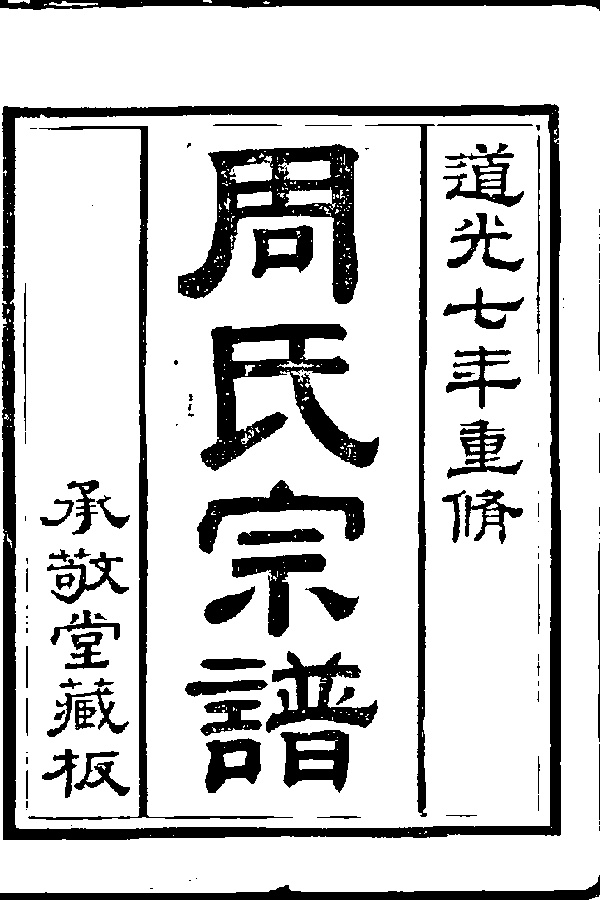 道光七年重脩
周氏宗譜
承敬堂藏板